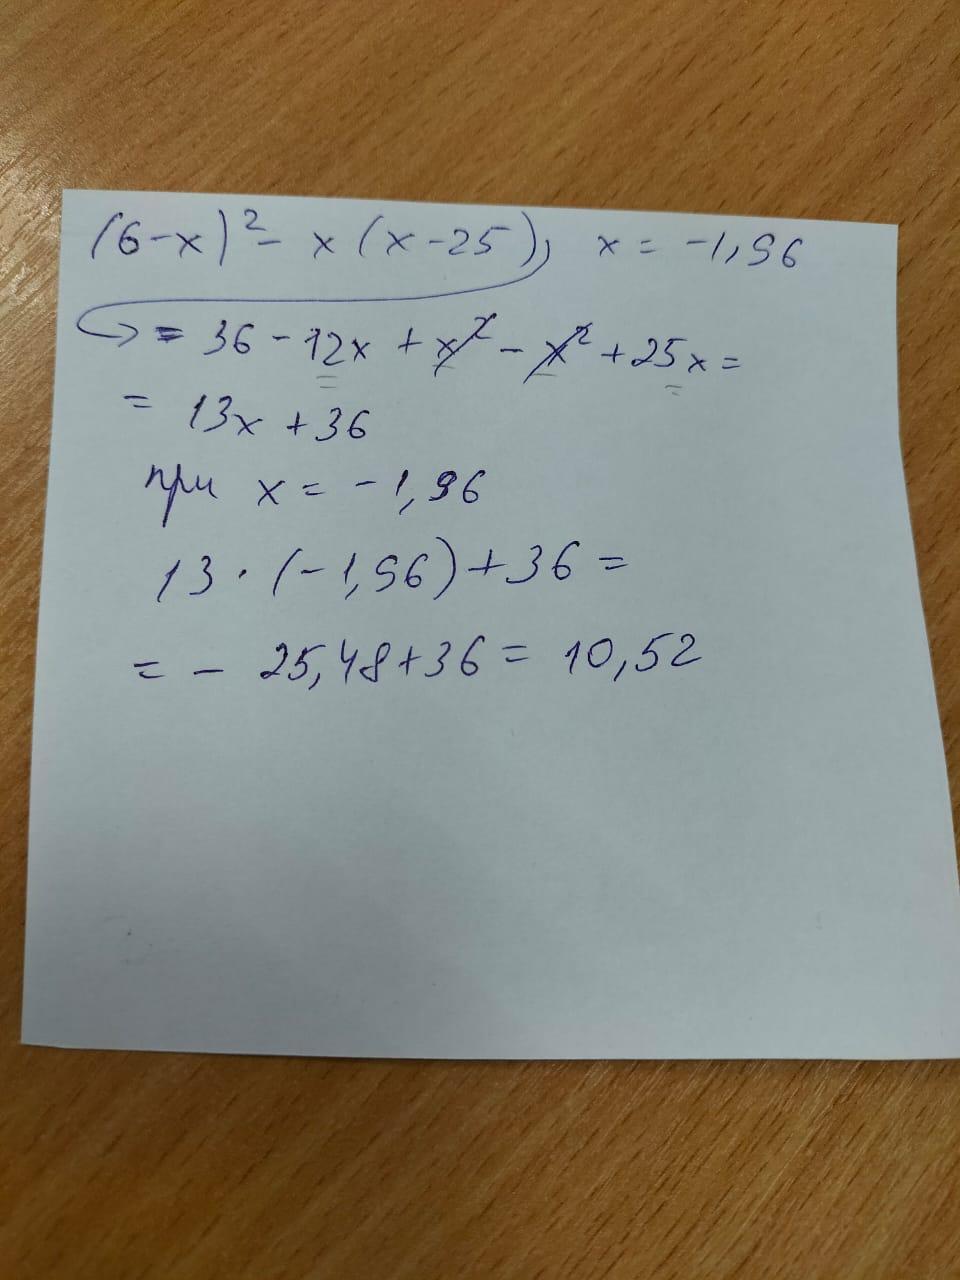 (6-x)² - x(x-25), x = -1,96
= 36 - 12x + x² - x² + 25x =
= 13x + 36
при x = -1,96
13 · (-1,96) + 36 =
= - 25,48 + 36 = 10,52